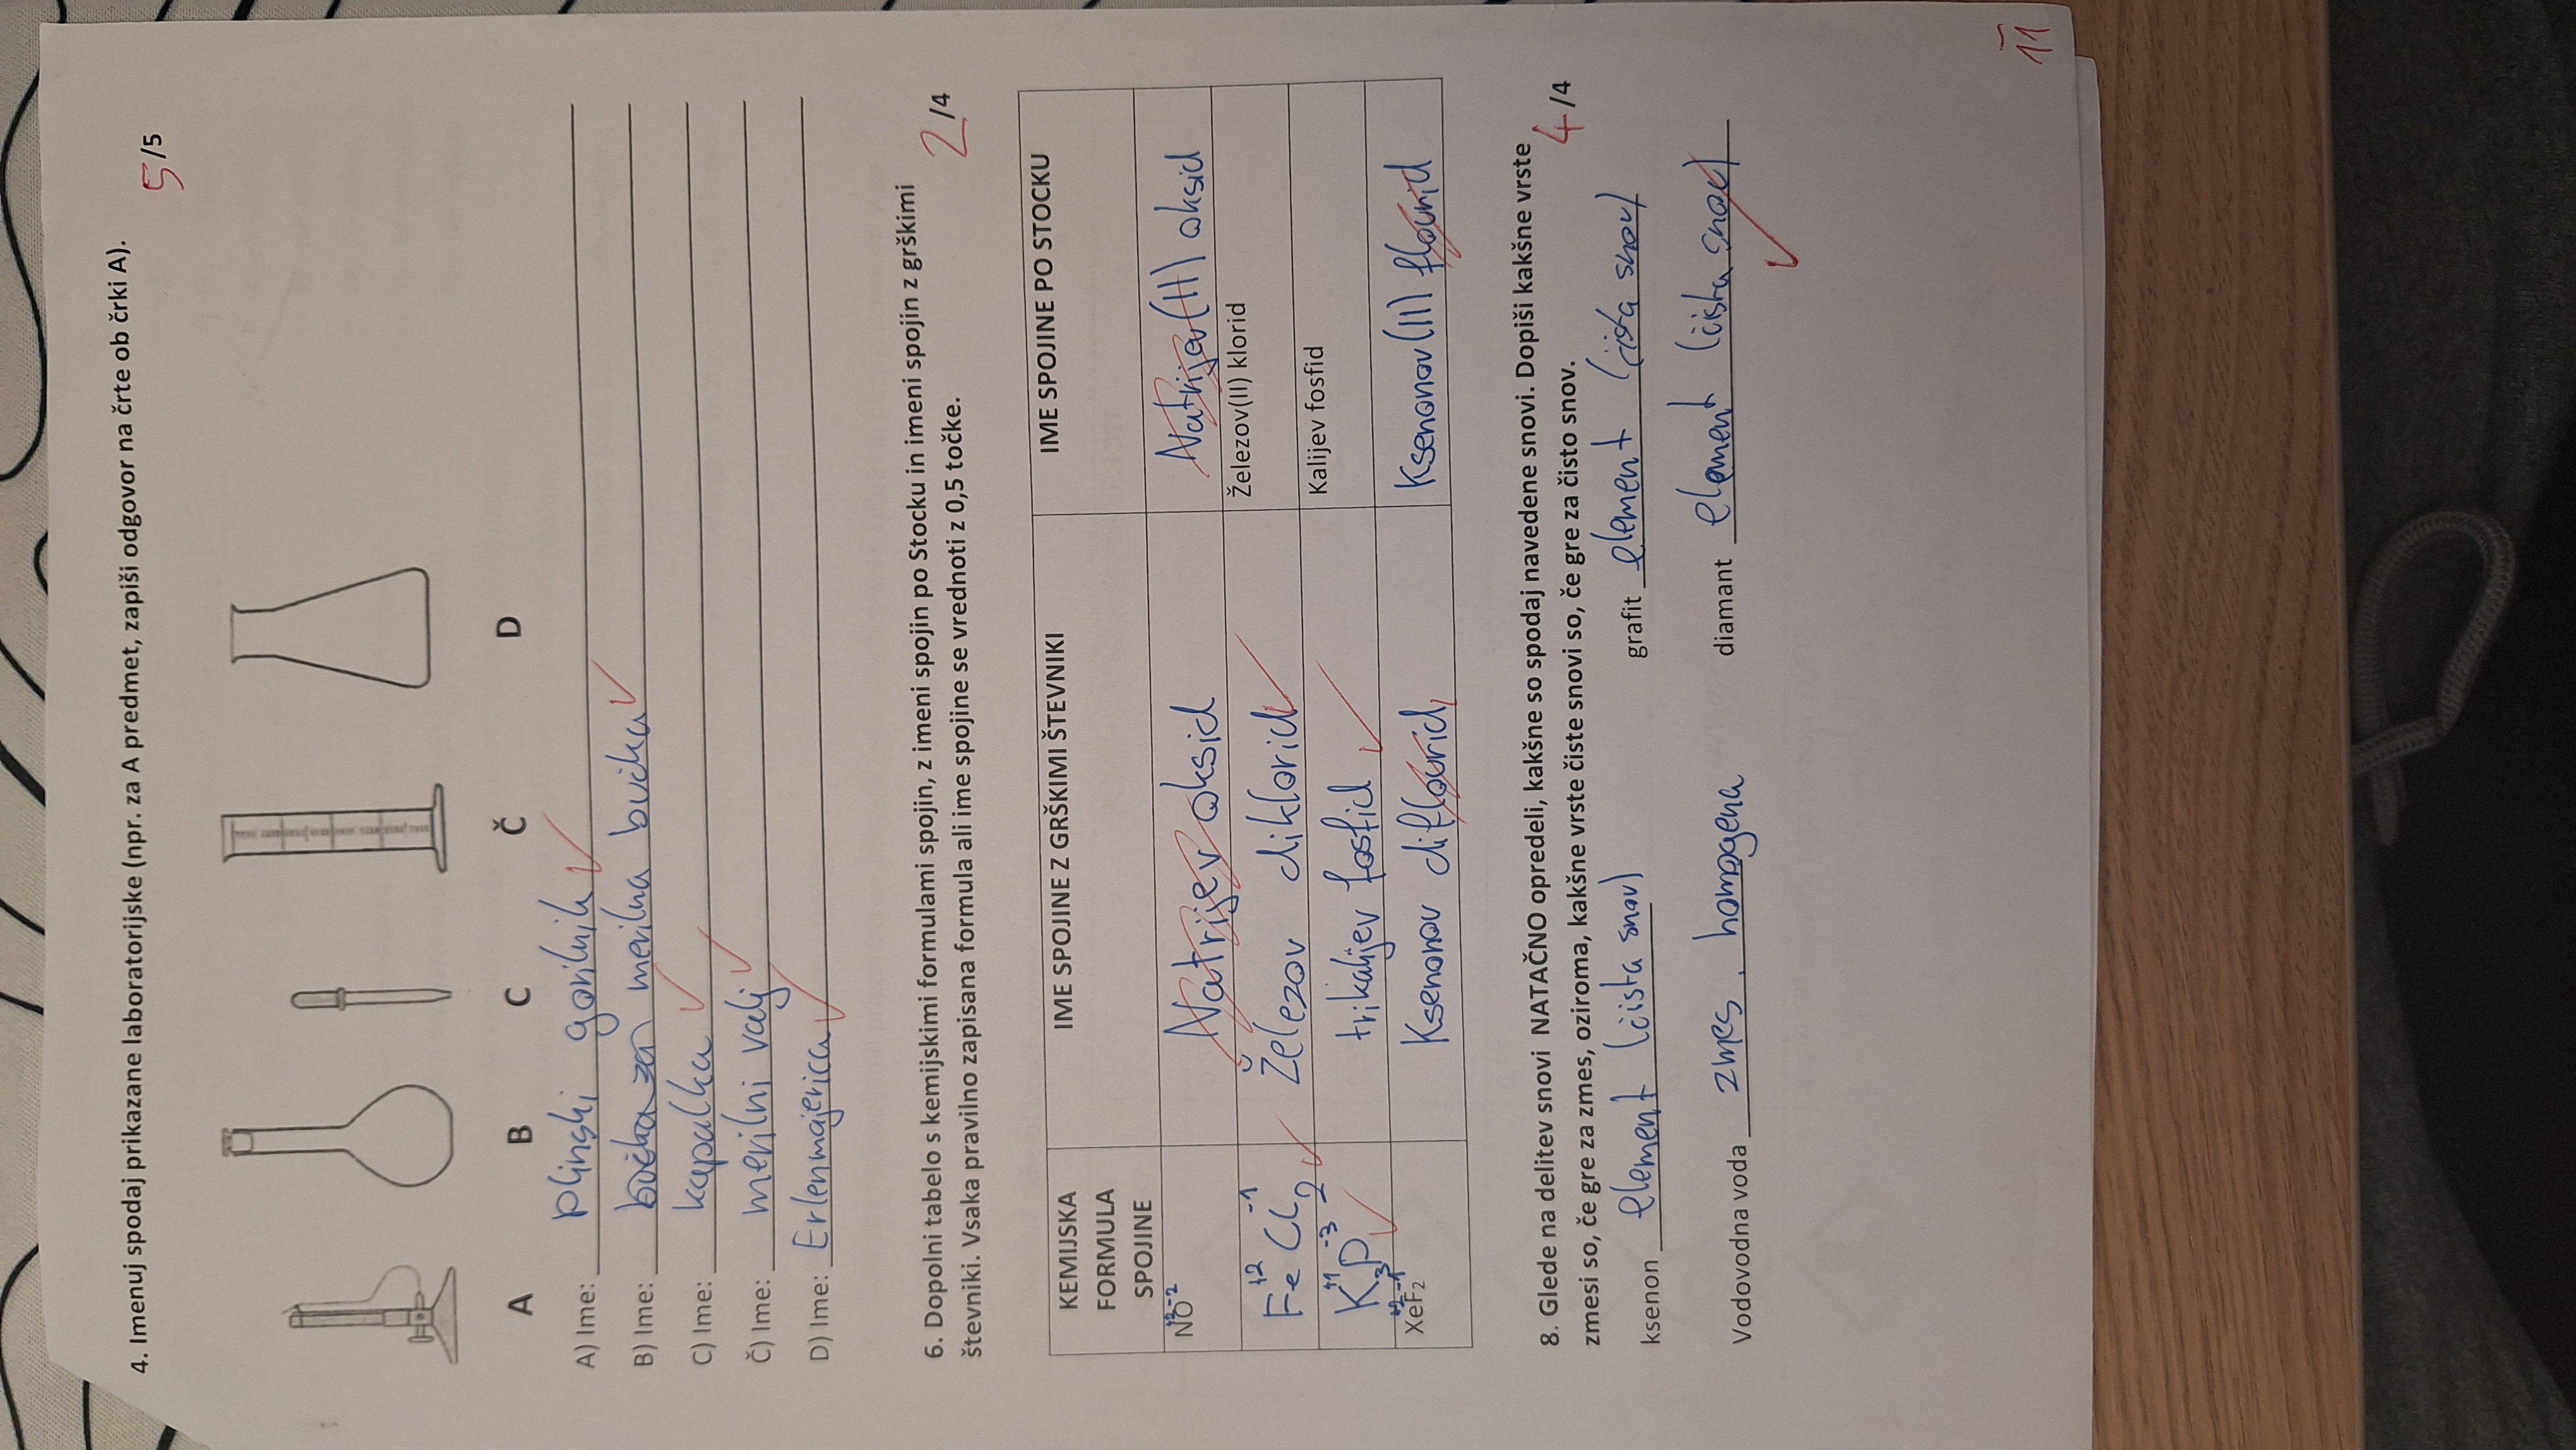 4. Imenuj spodaj prikazane laboratorijske (npr. za A predmet, zapiši odgovor na črte ob črki A).
5/5
A B C Č D
A) Ime: Plinski gorilnik
B) Ime: bučka za merilna bučka
C) Ime: kapalka
Č) Ime: merilni valj
D) Ime: Erlenmajerica
6. Dopolni tabelo s kemijskimi formulami spojin, z imeni spojin po Stocku in imeni spojin z grškimi
števniki. Vsaka pravilno zapisana formula ali ime spojine se vrednoti z 0,5 točke.
2/4
KEMIJSKA
FORMULA
SPOJINE
IME SPOJINE Z GRŠKIMI ŠTEVNIKI
IME SPOJINE PO STOCKU
NO +2 -2
Natrijev oksid
Natrijev(II) oksid
FeCl2 +2 -1
Železov diklorid
Železov(II) klorid
K3P +1 -3
trikalijev fosfid
Kalijev fosfid
XeF2 +2 -1
Ksenonov diflourid
Ksenonov(II) flourid
8. Glede na delitev snovi NATAČNO opredeli, kakšne so spodaj navedene snovi. Dopiši kakšne vrste
zmesi so, če gre za zmes, oziroma, kakšne vrste čiste snovi so, če gre za čisto snov.
4/4
ksenon element (čista snov)
grafit element (čista snov)
Vodovodna voda zmes, homogena
diamant element (čista snov)
11